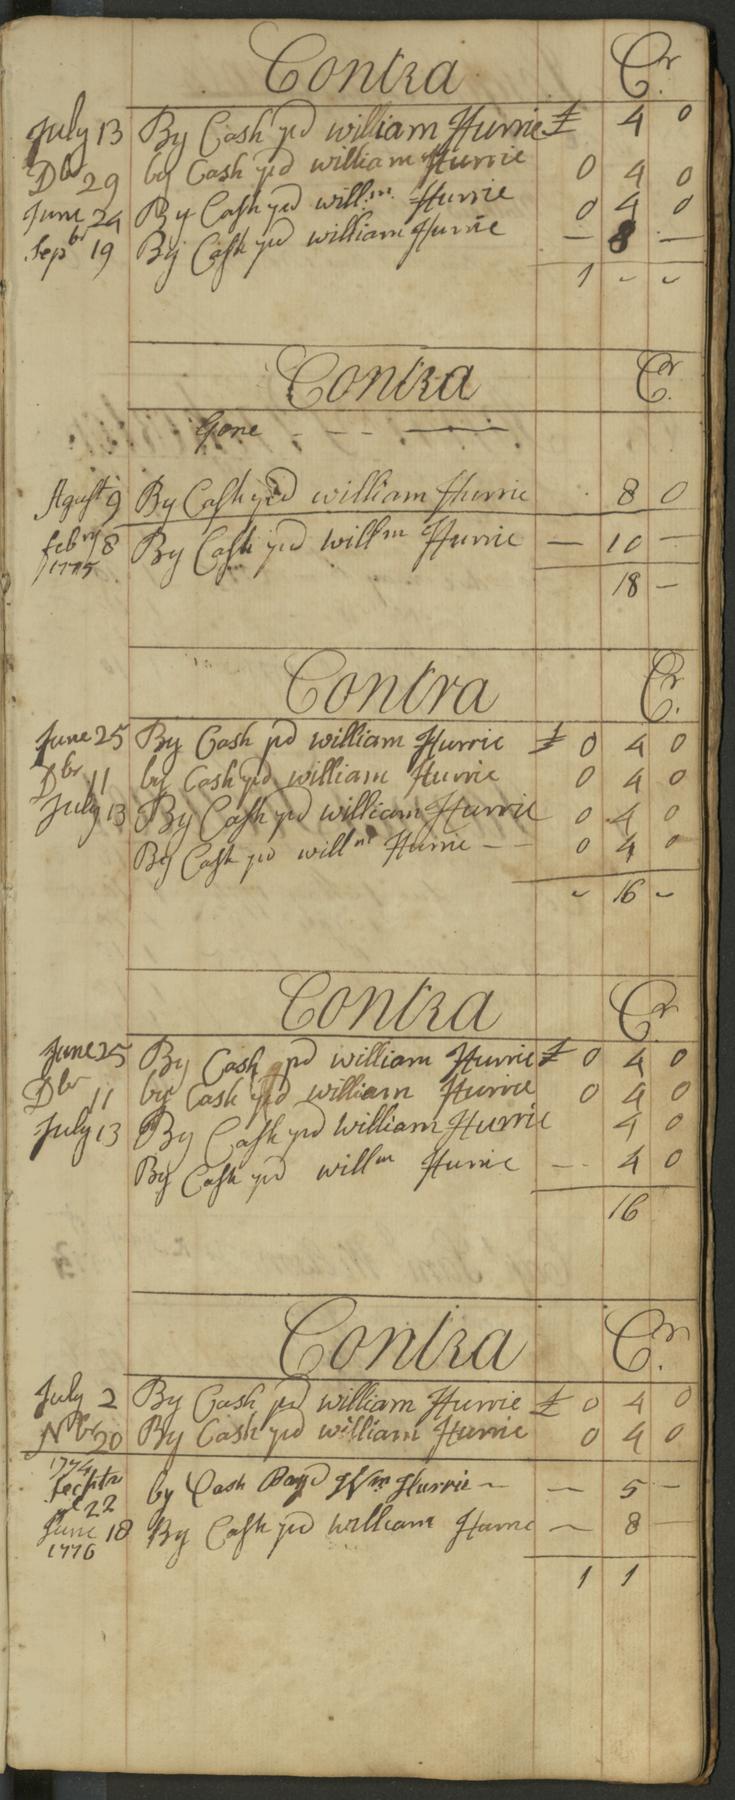 Contra Cr.
July 13 By Cash pd william Hurrie £ 4 0
Dbr 29 by Cash pd william Hurrie 0 4 0
June 24 By Cash pd willm Hurrie 0 4 0
Sepbr 19 By Cash pd william Hurrie — 8 —
1 - -
Contra Cr.
Gone - - - —
Agust 9 By Cash pd william Hurrie 8 0
Febry 8 By Cash pd willm Hurrie — 10 —
1775
18 —
Contra Cr.
June 25 By Cash pd william Hurrie £ 0 4 0
Dbr 11 by Cash pd william Hurrie 0 4 0
July 13 By Cash pd william Hurrie 0 4 0
By Cash pd willm Hurrie - - 0 4 0
- 16 -
Contra Cr.
June 25 By Cash pd william Hurrie £ 0 4 0
Dbr 11 by Cash pd william Hurrie 0 4 0
July 13 By Cash pd william Hurrie 4 0
By Cash pd willm Hurrie — 4 0
16
Contra Cr.
July 2 By Cash pd william Hurrie £ 0 4 0
Nobr 20 By Cash pd william Hurrie 0 4 0
1774
22 by Cash Wm Hurrie — — 5 —
June 18 By Cash pd william Hurrie — 8 —
1776
1 1